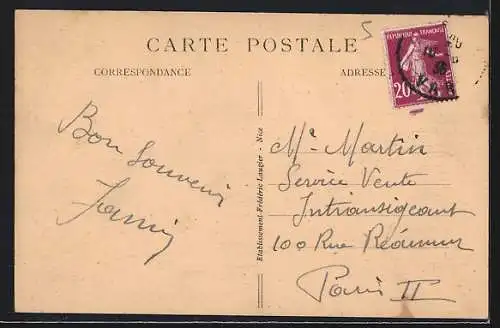 CARTE POSTALE
CORRESPONDANCE
ADRESSE
REPUBLIQUE FRANÇAISE
20
Bon Souvenir
Etablissement Frédéric Laugier - Nice
Mr Martin
Service Vente
Intransigeant
100 Rue Réaumur
Paris II